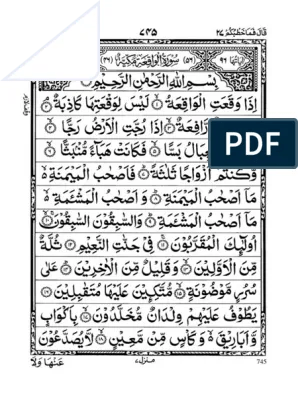 قَالَ فَمَا خَطْبُكُمْ ٢٧
٧٤٥
اٰیَاتُهَا ٩٦ (٥٦) سُوْرَةُ الْوَاقِعَةِ مَكِّیَّةٌ (٤٦)
بِسْمِ اللّٰهِ الرَّحْمٰنِ الرَّحِیْمِ
اِذَا وَقَعَتِ الْوَاقِعَةُ ۝١ لَیْسَ لِوَقْعَتِهَا كَاذِبَةٌ ۝٢
رَّافِعَةٌ ۝٣ اِذَا رُجَّتِ الْاَرْضُ رَجًّا ۝٤
PDF
بَسًّا ۝٥ فَكَانَتْ هَبَآءً مُّنْۢبَثًّا ۝٦
وَّكُنْتُمْ اَزْوَاجًا ثَلٰثَةً ۝٧ فَاَصْحٰبُ الْمَیْمَنَةِ
مَاۤ اَصْحٰبُ الْمَیْمَنَةِ ۝٨ وَاَصْحٰبُ الْمَشْـَٔمَةِ
مَاۤ اَصْحٰبُ الْمَشْـَٔمَةِ ۝٩ وَالسّٰبِقُوْنَ السّٰبِقُوْنَ ۝١٠
اُولٰٓىِٕكَ الْمُقَرَّبُوْنَ ۝١١ فِیْ جَنّٰتِ النَّعِیْمِ ۝١٢ ثُلَّةٌ
مِّنَ الْاَوَّلِیْنَ ۝١٣ وَقَلِیْلٌ مِّنَ الْاٰخِرِیْنَ ۝١٤ عَلٰی
سُرُرٍ مَّوْضُوْنَةٍ ۝١٥ مُّتَّكِـِٕیْنَ عَلَیْهَا مُتَقٰبِلِیْنَ ۝١٦
یَطُوْفُ عَلَیْهِمْ وِلْدَانٌ مُّخَلَّدُوْنَ ۝١٧ بِاَكْوَابٍ
وَّاَبَارِیْقَ وَكَاْسٍ مِّنْ مَّعِیْنٍ ۝١٨ لَّا یُصَدَّعُوْنَ
عَنْهَا وَلَا
منزل ٧
745